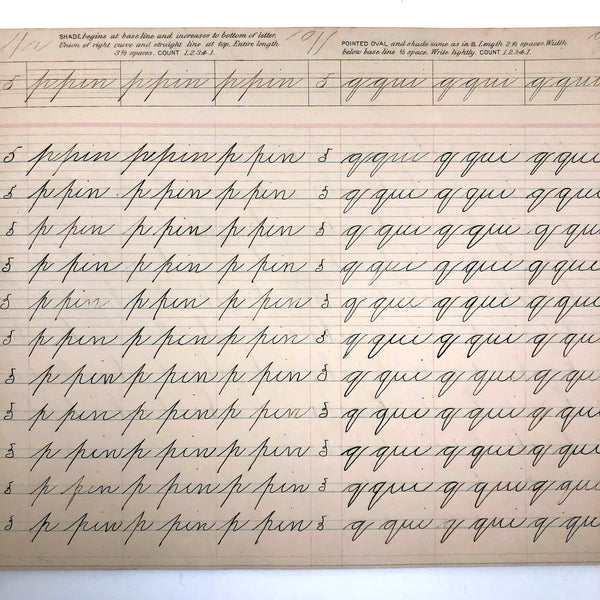 SHADE begins at base line and increases to bottom of letter.
Union of right curve and straight line at top. Entire length
spaces. COUNT 1.2.3.4.1.
POINTED OVAL and shade same as in a. Length spaces. Width
below base line space. Write lightly. COUNT 1.2.3.4.1.
5 p pin p pin p pin 5 q qui q qui q qui
5 p pin p pin p pin 5 q qui q qui q qui
5 p pin p pin p pin 5 q qui q qui q qui
5 p pin p pin p pin 5 q qui q qui q qui
5 p pin p pin p pin 5 q qui q qui q qui
5 p pin p pin p pin 5 q qui q qui q qui
5 p pin p pin p pin 5 q qui q qui q qui
5 p pin p pin p pin 5 q qui q qui q qui
5 p pin p pin p pin 5 q qui q qui q qui
5 p pin p pin p pin 5 q qui q qui q qui
5 p pin p pin p pin 5 q qui q qui q qui
5 p pin p pin p pin 5 q qui q qui q qui